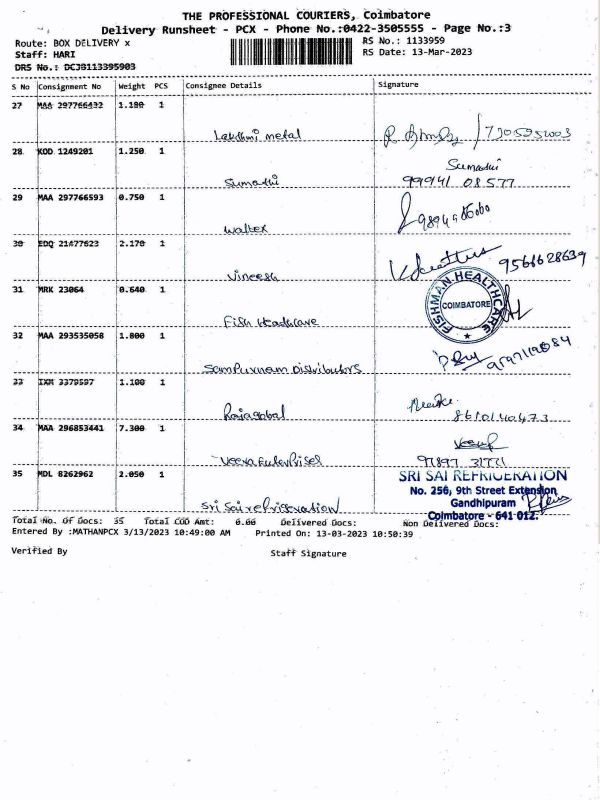 THE PROFESSIONAL COURIERS, Coimbatore
Delivery Runsheet - PCX - Phone No.:0422-3505555 - Page No.:3
Route: BOX DELIVERY x
RS No.: 1133959
Staff: HARI
RS Date: 13-Mar-2023
DRS No.: DCJB113395903
S No Consignment No Weight PCS Consignee Details Signature
27 MAA 297766432 1.180 1
Lakshmi metal
28 KOD 1249201 1.250 1 Sumathi
Sumathi 99941 08577
29 MAA 297766593 0.750 1
Waltex
30 EDQ 21477623 2.170 1
Vineesh 9566628639
31 MRK 23064 0.640 1
FISHMAN HEALTHCARE
COIMBATORE
32 MAA 293535058 1.000 1
Sampurnam Distributors
33 IXM 3379597 1.100 1
Rajagobal 8610140473
34 MAA 296853441 7.300 1
Veera Enterprises
35 MDL 8262962 2.050 1
SRI SAI REFRIGERATION
No. 256, 9th Street Extension,
Gandhipuram
Coimbatore - 641 012.
Sri Sai refrigeration
Total No. Of Docs: 35 Total COD Amt: 0.00 Delivered Docs: Non Delivered Docs:
Entered By :MATHANPCX 3/13/2023 10:49:00 AM Printed On: 13-03-2023 10:50:39
Verified By Staff Signature